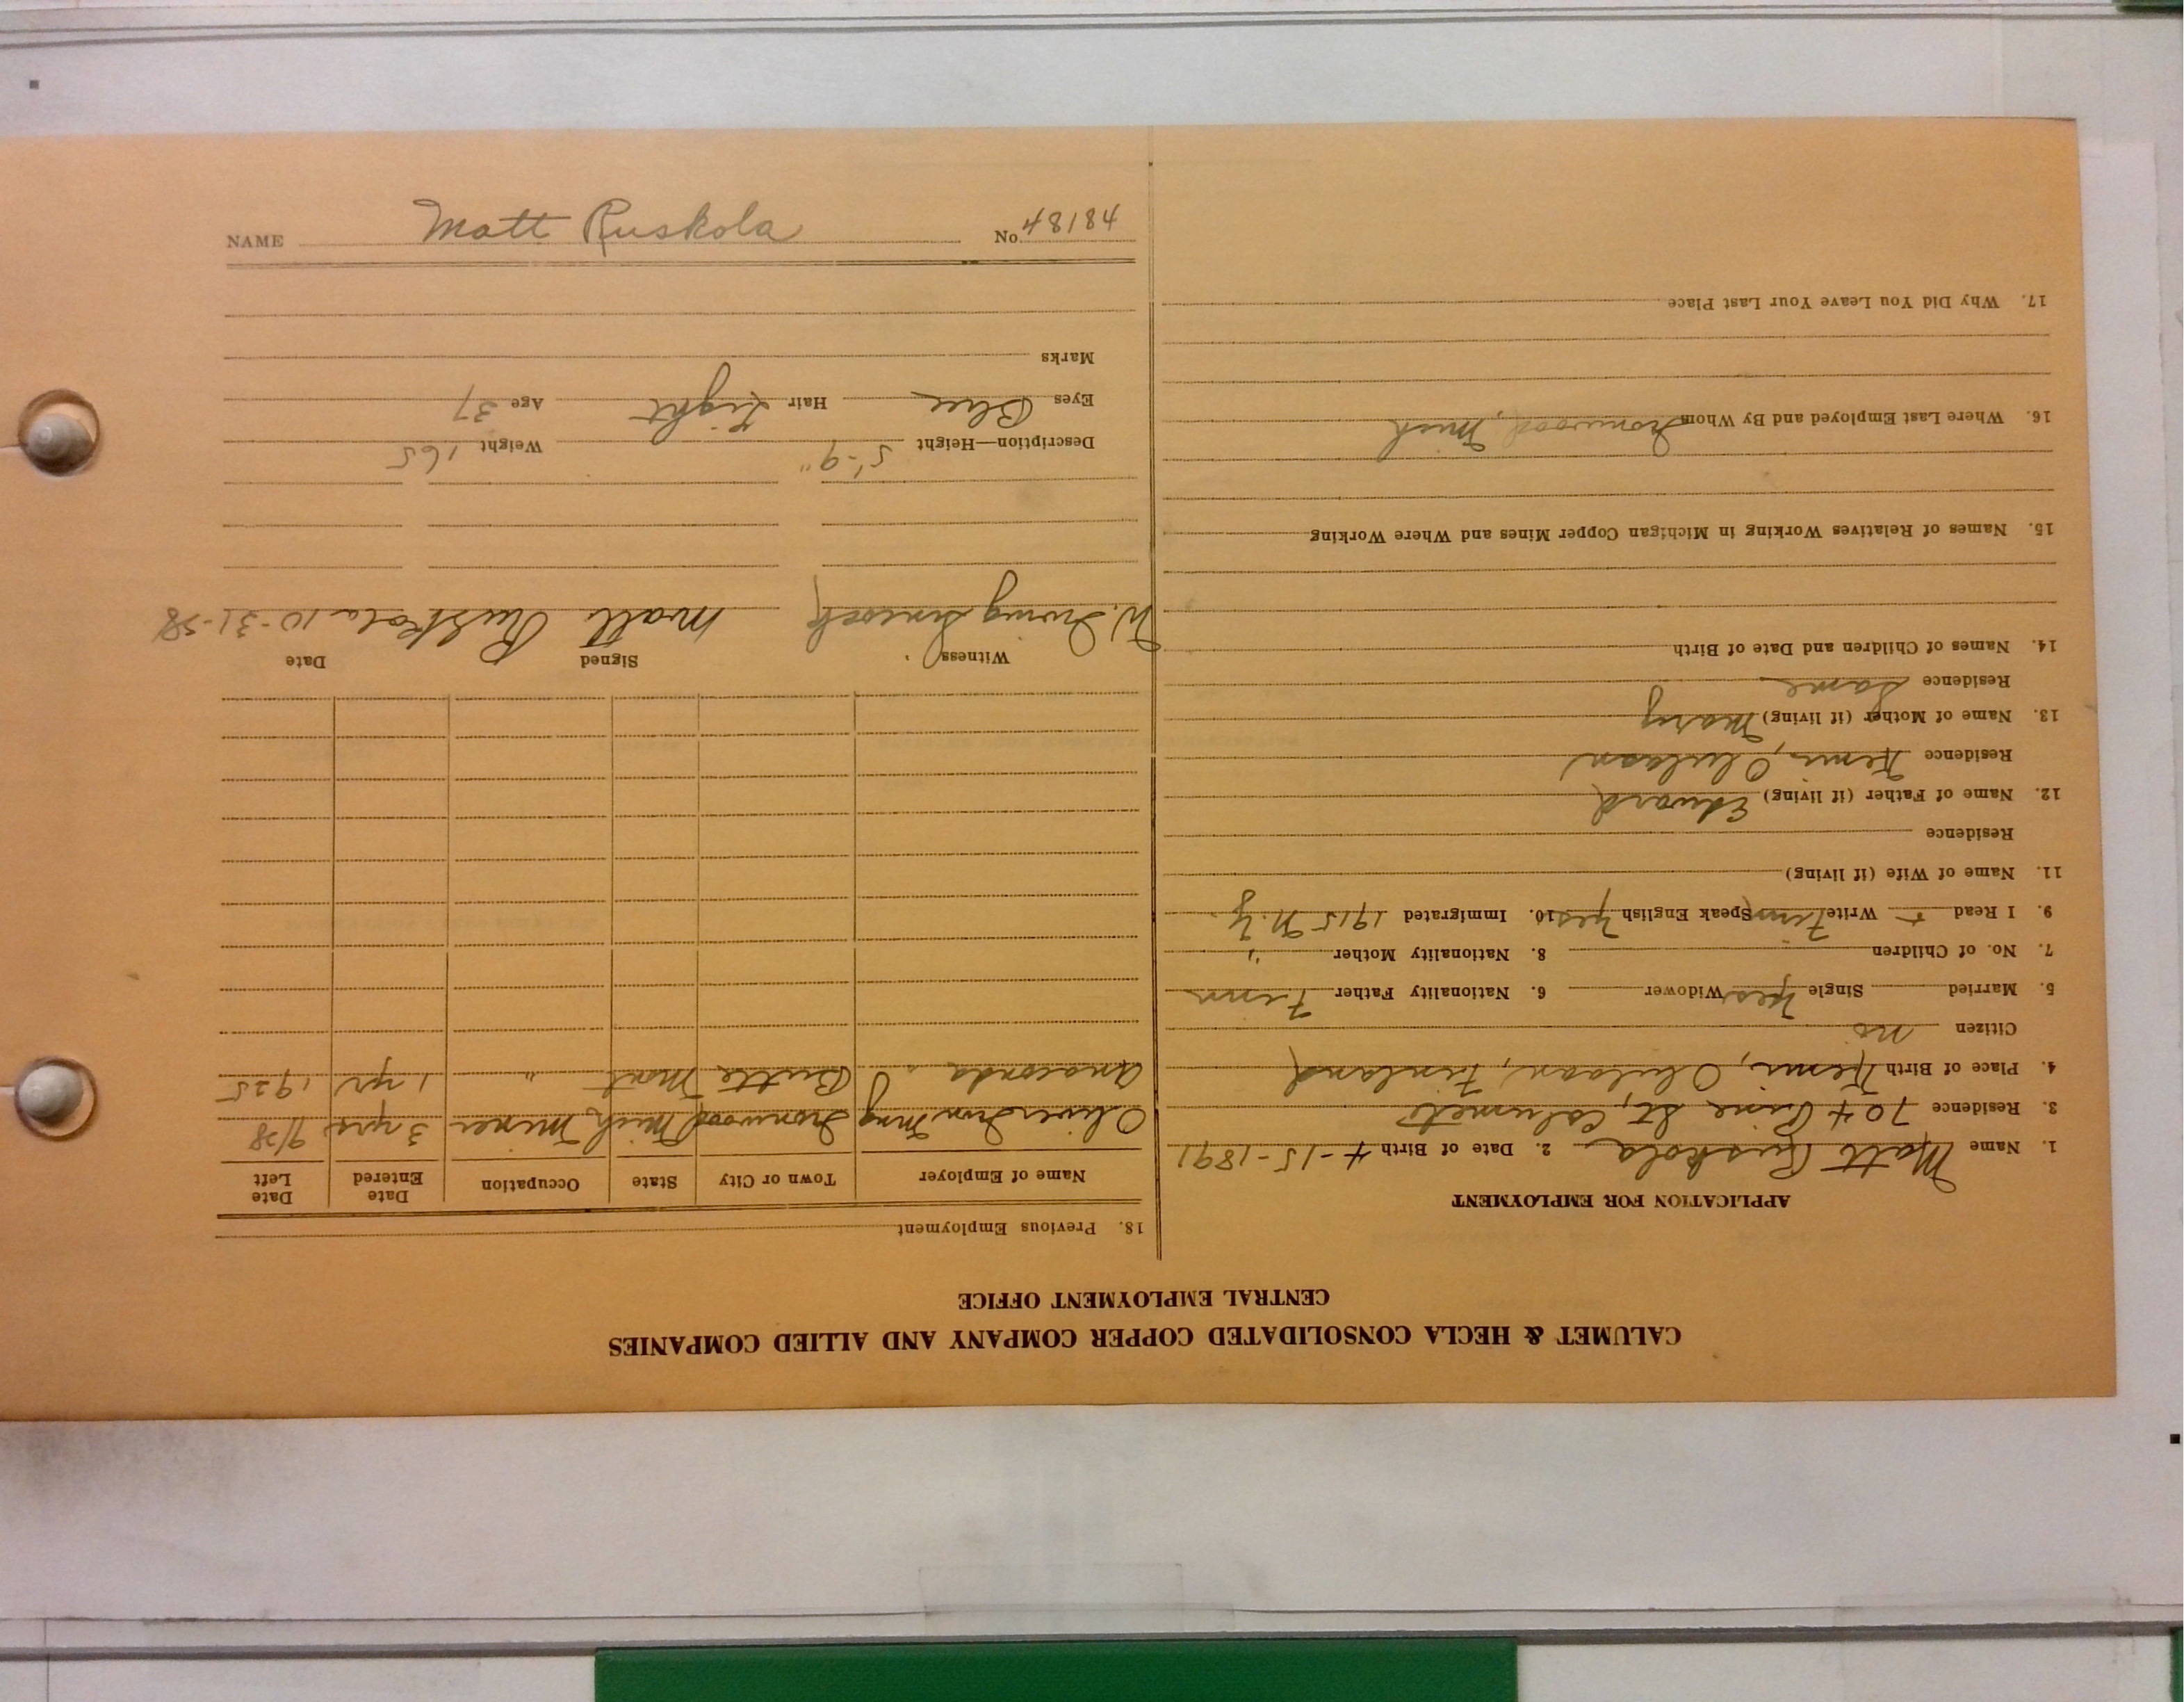 NAME Matt Ruskola No. 48184
CALUMET & HECLA CONSOLIDATED COPPER COMPANY AND ALLIED COMPANIES
CENTRAL EMPLOYMENT OFFICE
APPLICATION FOR EMPLOYMENT
1. Name Matt Ruskola 2. Date of Birth 4-15-1891
3. Residence 704 Pine St, Calumet
4. Place of Birth Kemi, Oulaan, Finland
Citizen no
5. Married Single Yes Widower 6. Nationality Father Finn
7. No. of Children 8. Nationality Mother "
9. I Read + Write Finn Speak English Yes 10. Immigrated 1915 N.Y.
11. Name of Wife (if living)
Residence
12. Name of Father (if living) Edward
Residence Kemi, Oulaan
13. Name of Mother (if living) Mary
Residence Same
14. Names of Children and Date of Birth
15. Names of Relatives Working in Michigan Copper Mines and Where Working
16. Where Last Employed and By Whom Ironwood, Mich
17. Why Did You Leave Your Last Place
18. Previous Employment
Name of Employer Town or City State Occupation Date Entered Date Left
Oliver Iron Mng Ironwood Mich Miner 3 yrs 9/28
Anaconda " Butte Mont " 1 yr 1925
Witness Signed Date
W. Irving Matt Ruskola 10-31-28
Description—Height 5'-9" Weight 165
Eyes Blue Hair Light Age 37
Marks